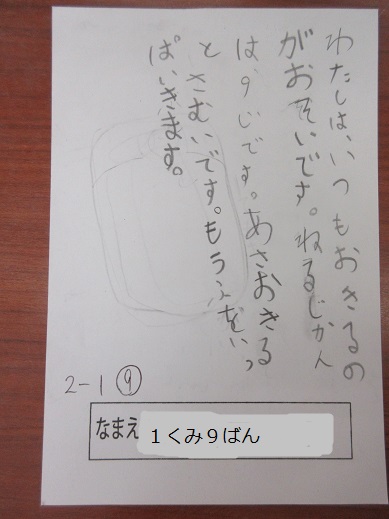 わたしは、いつもおきるの
がおそいです。ねるじかん
は、9じです。あさおきる
とさむいです。もうふをいっ
ぱいきます。
2-1⑨
なまえ 1くみ9ばん